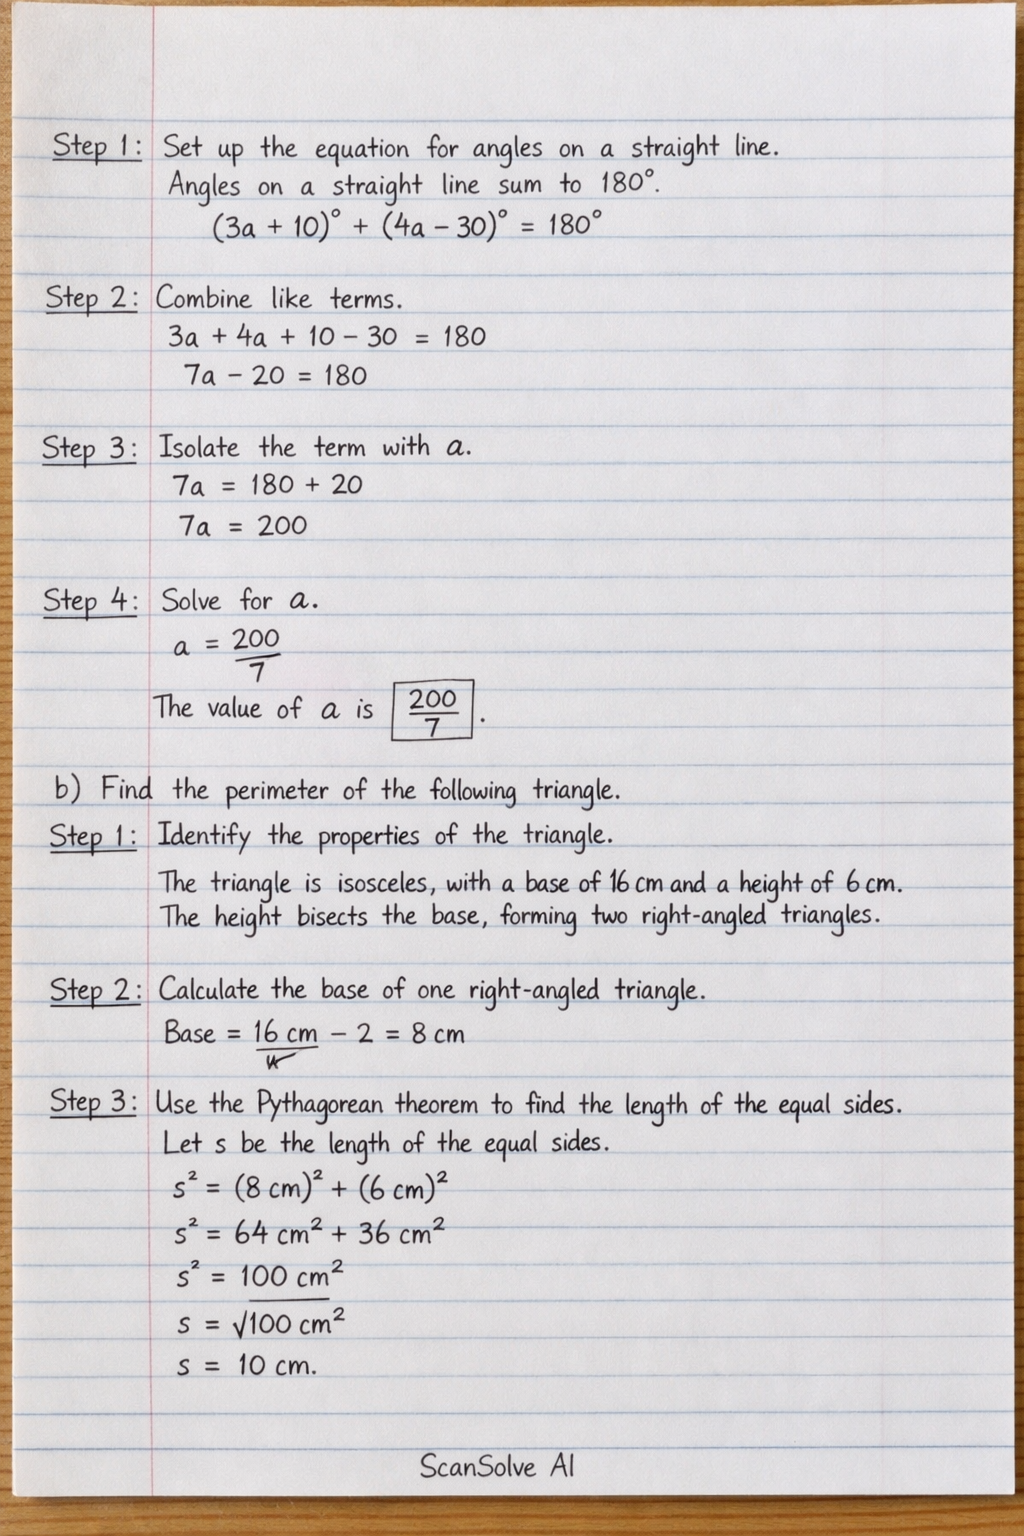 Step 1: Set up the equation for angles on a straight line.
Angles on a straight line sum to 180°.
(3a + 10)° + (4a − 30)° = 180°
Step 2: Combine like terms.
3a + 4a + 10 − 30 = 180
7a − 20 = 180
Step 3: Isolate the term with a.
7a = 180 + 20
7a = 200
Step 4: Solve for a.
a = 200/7
The value of a is 200/7.
b) Find the perimeter of the following triangle.
Step 1: Identify the properties of the triangle.
The triangle is isosceles, with a base of 16 cm and a height of 6 cm.
The height bisects the base, forming two right-angled triangles.
Step 2: Calculate the base of one right-angled triangle.
Base = 16 cm − 2 = 8 cm
Step 3: Use the Pythagorean theorem to find the length of the equal sides.
Let s be the length of the equal sides.
s² = (8 cm)² + (6 cm)²
s² = 64 cm² + 36 cm²
s² = 100 cm²
s = √100 cm²
s = 10 cm.
ScanSolve AI